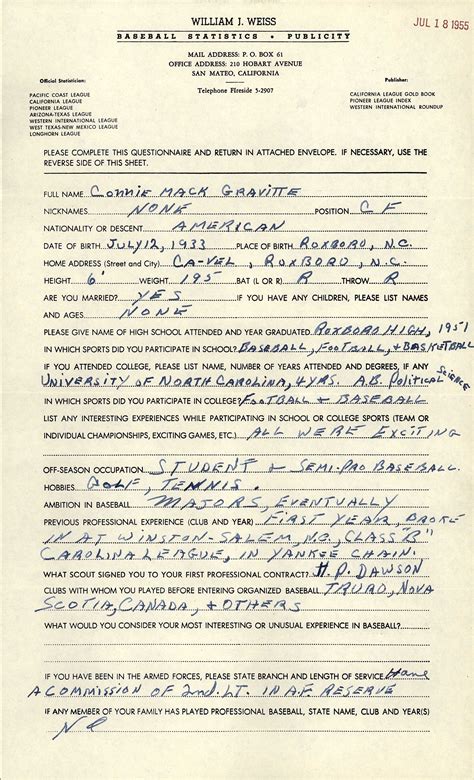 WILLIAM J. WEISS
JUL 18 1955
BASEBALL STATISTICS • PUBLICITY
MAIL ADDRESS: P. O. BOX 61
OFFICE ADDRESS: 210 HOBART AVENUE
SAN MATEO, CALIFORNIA
Telephone Fireside 5-2907
Official Statistician:
PACIFIC COAST LEAGUE
CALIFORNIA LEAGUE
PIONEER LEAGUE
ARIZONA-TEXAS LEAGUE
WESTERN INTERNATIONAL LEAGUE
WEST TEXAS-NEW MEXICO LEAGUE
LONGHORN LEAGUE
Publisher:
CALIFORNIA LEAGUE GOLD BOOK
PIONEER LEAGUE INDEX
WESTERN INTERNATIONAL ROUNDUP
PLEASE COMPLETE THIS QUESTIONNAIRE AND RETURN IN ATTACHED ENVELOPE. IF NECESSARY, USE THE
REVERSE SIDE OF THIS SHEET.
FULL NAME Connie Mack Gravitte
NICKNAMES NONE POSITION CF
NATIONALITY OR DESCENT AMERICAN
DATE OF BIRTH July 12, 1933 PLACE OF BIRTH Roxboro, N.C.
HOME ADDRESS (Street and City) Ca-Vel, Roxboro, N.C.
HEIGHT 6' WEIGHT 195 BAT (L OR R) R THROW R
ARE YOU MARRIED? YES IF YOU HAVE ANY CHILDREN, PLEASE LIST NAMES
AND AGES NONE
PLEASE GIVE NAME OF HIGH SCHOOL ATTENDED AND YEAR GRADUATED Roxboro High, 1951
IN WHICH SPORTS DID YOU PARTICIPATE IN SCHOOL? Baseball, Football, & Basketball
IF YOU ATTENDED COLLEGE, PLEASE LIST NAME, NUMBER OF YEARS ATTENDED AND DEGREES, IF ANY
University of North Carolina, 4 yrs. A.B. Political Science
IN WHICH SPORTS DID YOU PARTICIPATE IN COLLEGE? Football & Baseball
LIST ANY INTERESTING EXPERIENCES WHILE PARTICIPATING IN SCHOOL OR COLLEGE SPORTS (TEAM OR
INDIVIDUAL CHAMPIONSHIPS, EXCITING GAMES, ETC.) All Were Exciting
OFF-SEASON OCCUPATION Student & Semi-Pro Baseball.
HOBBIES Golf, Tennis.
AMBITION IN BASEBALL MAJORS, EVENTUALLY
PREVIOUS PROFESSIONAL EXPERIENCE (CLUB AND YEAR) First Year, Broke
in at Winston-Salem, N.C., Class "B"
Carolina League, in Yankee Chain.
WHAT SCOUT SIGNED YOU TO YOUR FIRST PROFESSIONAL CONTRACT? H. P. Dawson
CLUBS WITH WHOM YOU PLAYED BEFORE ENTERING ORGANIZED BASEBALL Truro, Nova
Scotia, Canada, & Others
WHAT WOULD YOU CONSIDER YOUR MOST INTERESTING OR UNUSUAL EXPERIENCE IN BASEBALL?
IF YOU HAVE BEEN IN THE ARMED FORCES, PLEASE STATE BRANCH AND LENGTH OF SERVICE Have
A Commission of 2nd. Lt. in A.F. Reserve
IF ANY MEMBER OF YOUR FAMILY HAS PLAYED PROFESSIONAL BASEBALL, STATE NAME, CLUB AND YEAR(S)